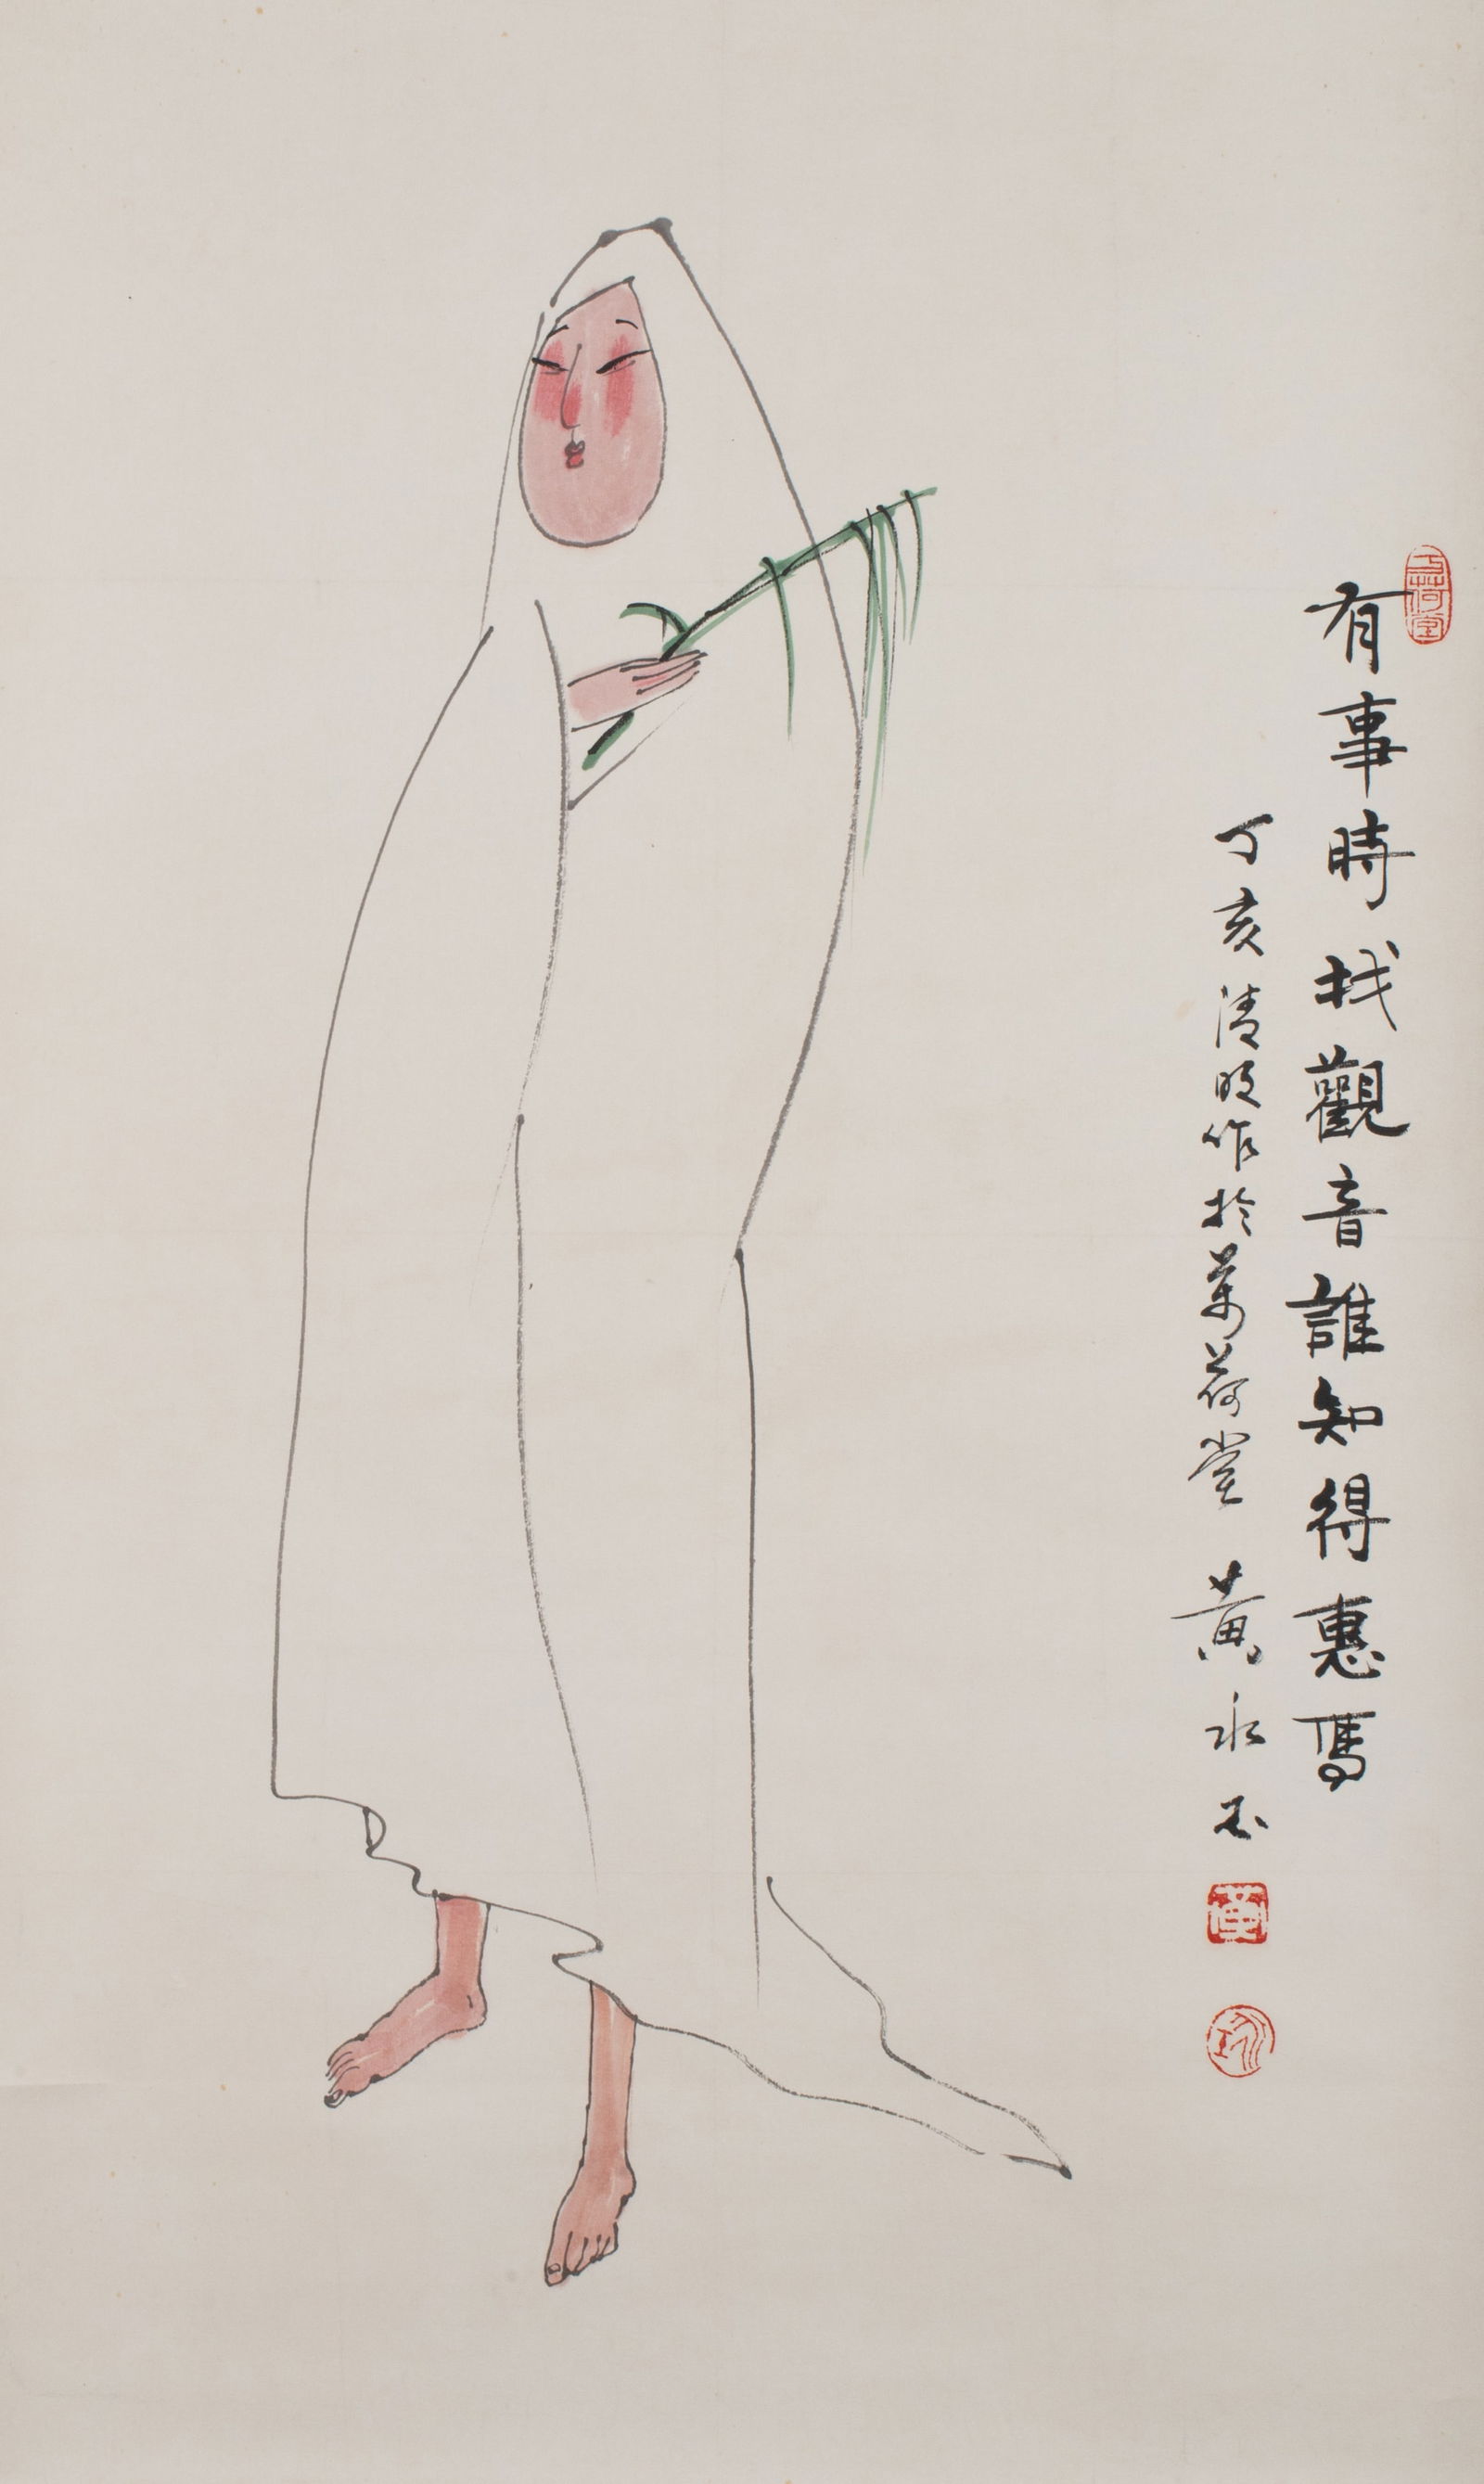 有事時找觀音誰知得惠焉
丁亥清明作於萬荷堂 黃永玉
萬荷堂
黃